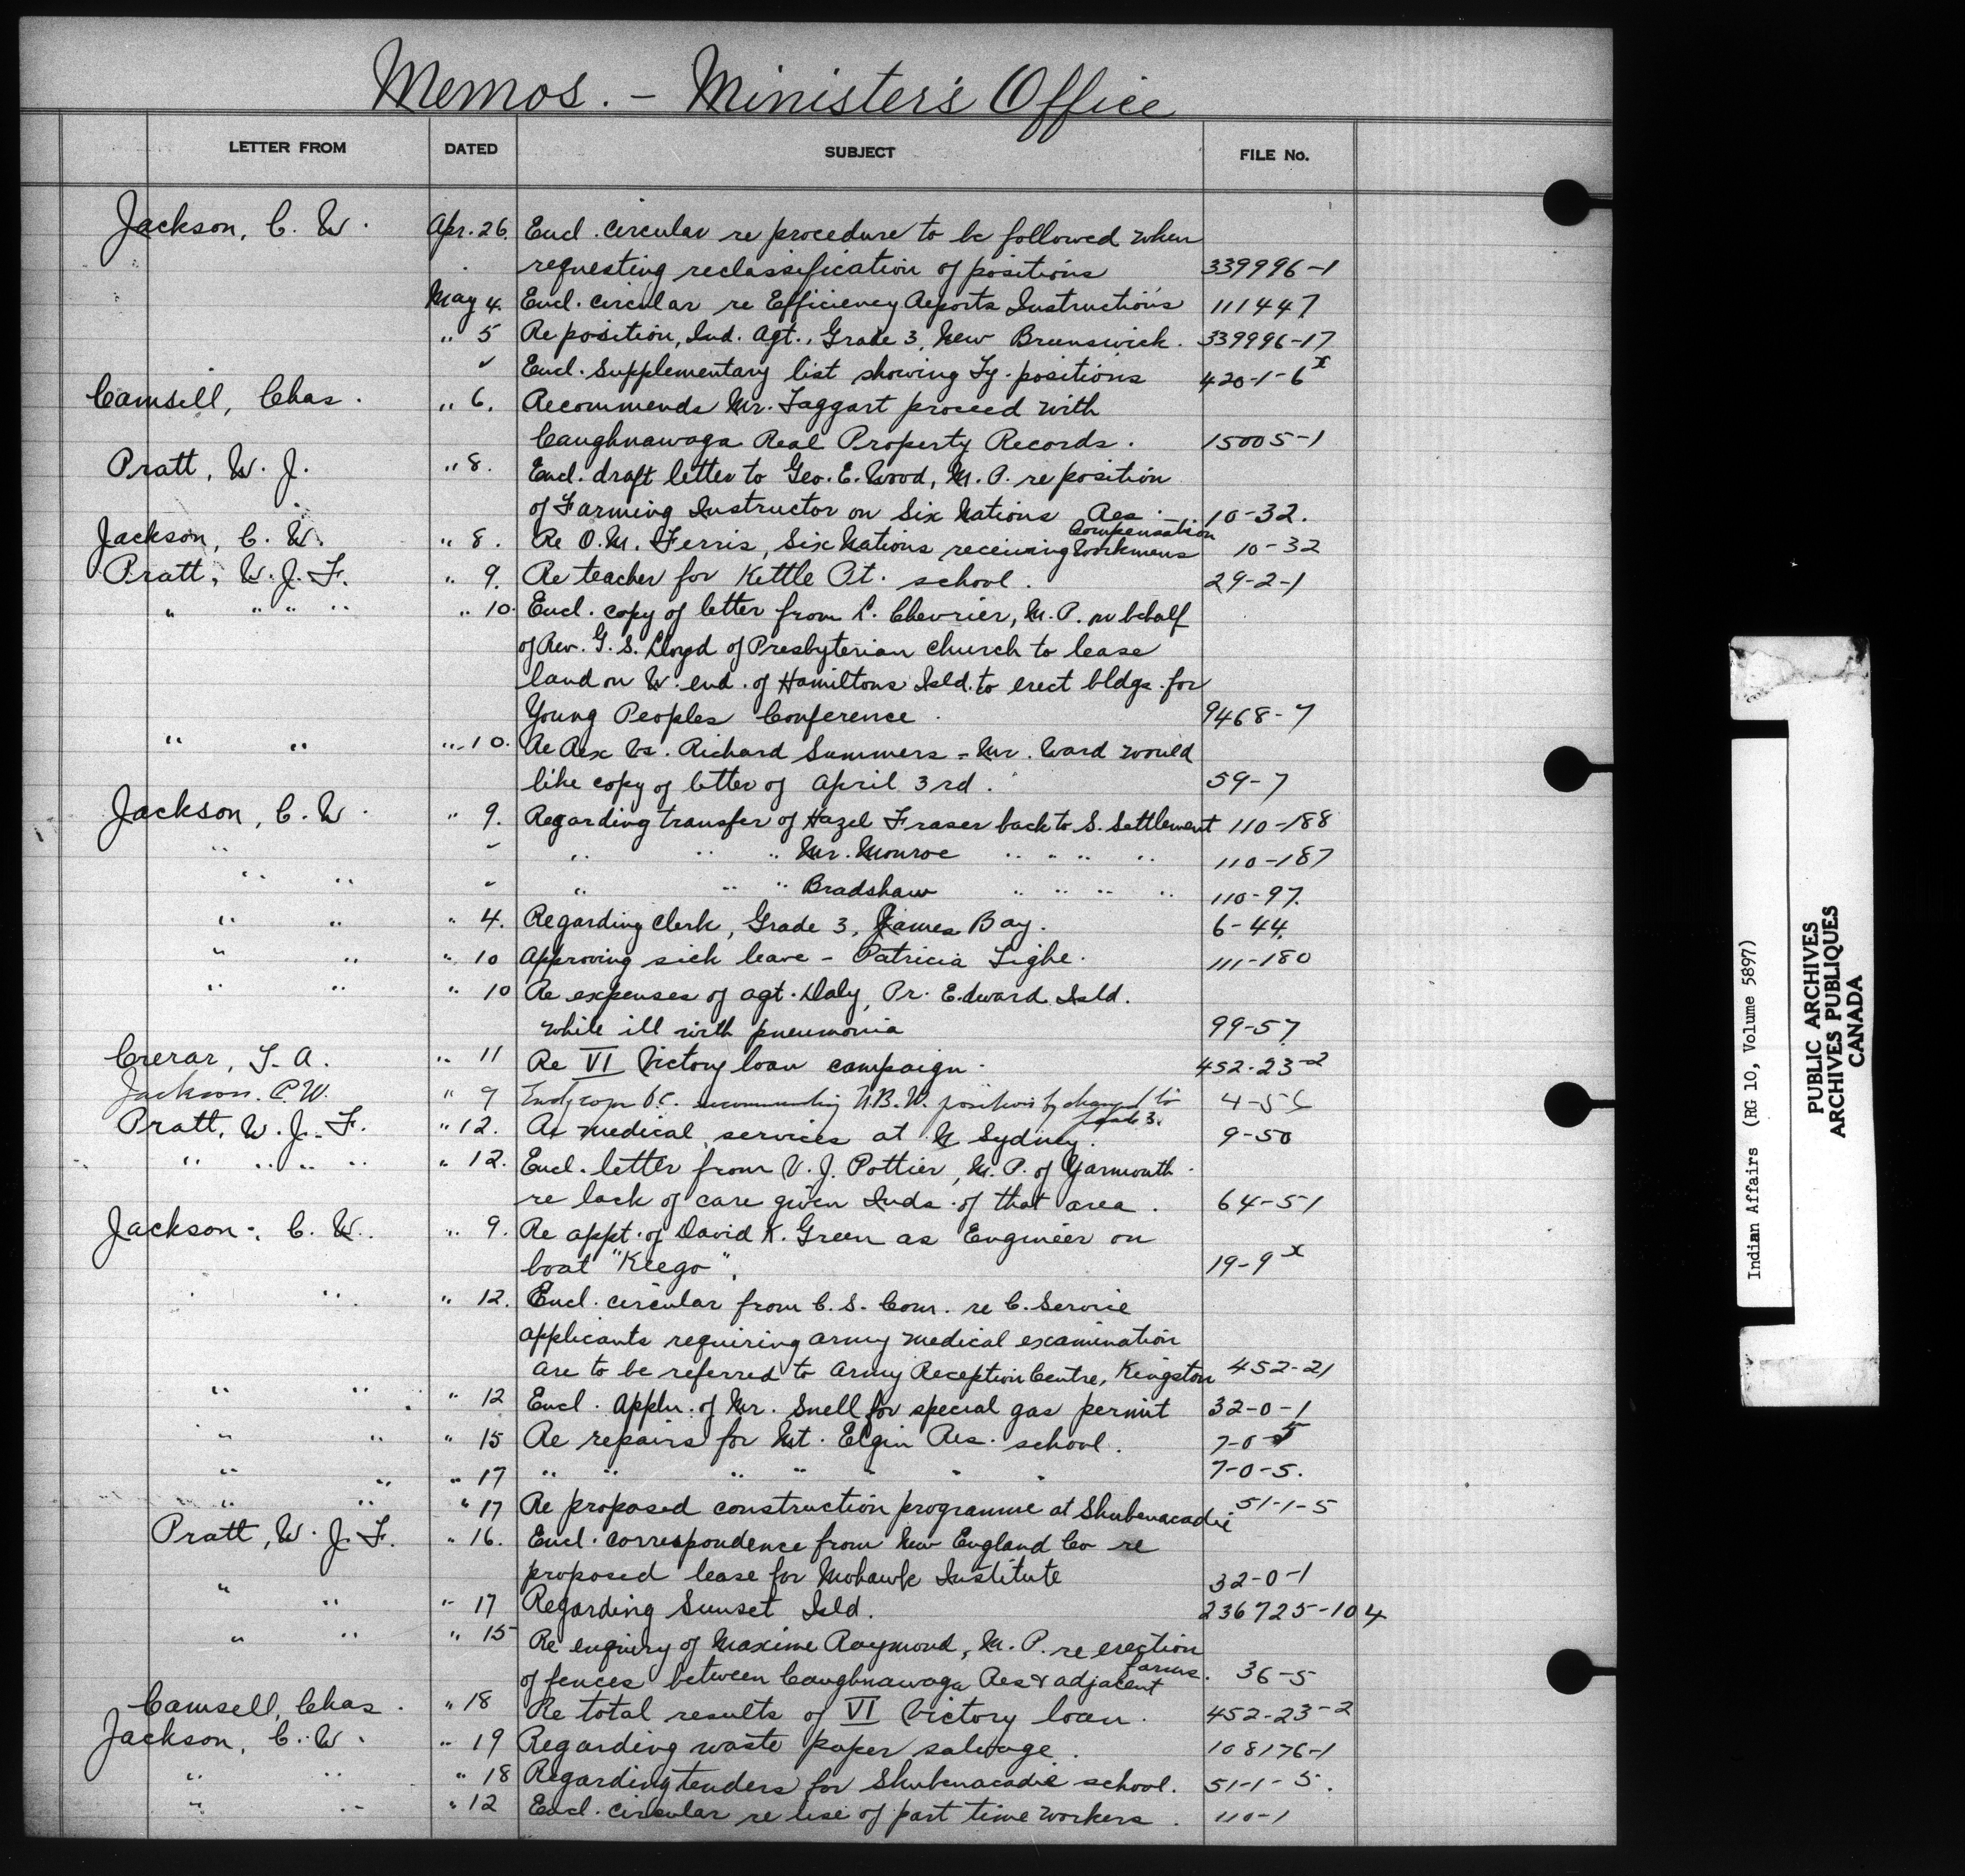 Memos. – Minister's Office
LETTER FROM DATED SUBJECT FILE No.
Jackson, C. W. Apr. 26. Encl. circular re procedure to be followed when
requesting reclassification of positions 339996-1
May 4. Encl. circular re Efficiency Reports Instructions 111447
" 5 Re position, Ind. Agt., Grade 3, New Brunswick. 339996-17
" Encl. Supplementary list showing Ty. positions 420-1-6x
Camsell, Chas. " 6. Recommends Mr. Taggart proceed with
Caughnawaga Real Property Records. 15005-1
Pratt, W. J. " 8. Encl. draft letter to Geo. E. Wood, M. P. re position
of Farming Instructor on Six Nations Res. 10-32.
Jackson, C. W. " 8. Re O. M. Ferris, Six Nations receiving Workmens Compensation 10-32
Pratt, W. J. F. " 9. Re teacher for Kettle Pt. school. 29-2-1
" " " " " 10. Encl. copy of letter from L. Chevrier, M. P. on behalf
of Rev. G. S. Lloyd of Presbyterian church to lease
land on W. end. of Hamiltons Isld. to erect bldgs. for
Young Peoples Conference. 9468-7
" " " 10. Re Rex Vs. Richard Summers – Mr. Ward would
like copy of letter of April 3rd. 59-7
Jackson, C. W. " 9. Regarding transfer of Hazel Fraser back to S. Settlement 110-188
" " " " " Mr. Monroe " " " " 110-187
" " " " " " Bradshaw " " " " 110-97.
" " " 4. Regarding Clerk, Grade 3, James Bay. 6-44.
" " " 10 Approving sick leave – Patricia Tighe. 111-180
" " " 10 Re expenses of agt. Daly, Pr. Edward Isld.
while ill with pneumonia 99-57
Crerar, T. A. " 11 Re VI Victory loan campaign. 452-23-2
Jackson. C. W. " 9 O.C. recommending N.B.W. position changed to
grade 3. 4-5
Pratt, W. J. F. " 12. Re medical services at N Sydney. 9-50
" " " " " 12. Encl. letter from V. J. Pottier, M. P. of Yarmouth
re lack of care given Inds. of that area. 64-51
Jackson, C. W. " 9. Re appt. of David K. Green as Engineer on
boat "Keego". 19-9x
" " 12. Encl. circular from C. S. Com. re C. Service
applicants requiring army medical examination
are to be referred to Army Reception Centre, Kingston 452-21
" " " 12 Encl. Appln. of Mr. Snell for special gas permit 32-0-1
" " " 15 Re repairs for Mt. Elgin Res. school. 7-0-5
" " " 17 " " " " " " " 7-0-5.
" " " 17 Re proposed construction programme at Shubenacadie 51-1-5
Pratt, W. J. F. " 16. Encl. correspondence from New England Co re
proposed lease for Mohawk Institute 32-0-1
" " " 17 Regarding Sunset Isld. 236725-104
" " " 15 Re enquiry of Maxime Raymond, M. P. re erection
of fences between Caughnawaga Res & adjacent farms. 36-5
Camsell, Chas. " 18 Re total results of VI Victory loan. 452-23-2
Jackson, C. W. " 19 Regarding waste paper salvage. 108176-1
" " " 18 Regarding tenders for Shubenacadie school. 51-1-5.
" " " 12 Encl. circular re use of part time workers. 110-1
Indian Affairs (RG 10, Volume 5897)
PUBLIC ARCHIVES
ARCHIVES PUBLIQUES
CANADA